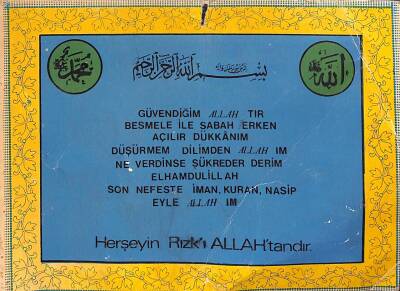 الله
محمد
بسم الله الرحمن الرحيم
GÜVENDİĞİM ALLAH TIR
BESMELE İLE SABAH ERKEN
AÇILIR DÜKKÂNIM
DÜŞÜRMEM DİLİMDEN ALLAH IM
NE VERDİNSE ŞÜKREDER DERİM
ELHAMDULİLLAH
SON NEFESTE İMAN, KURAN, NASİP
EYLE ALLAH IM
Herşeyin Rızk'ı ALLAH'tandır.